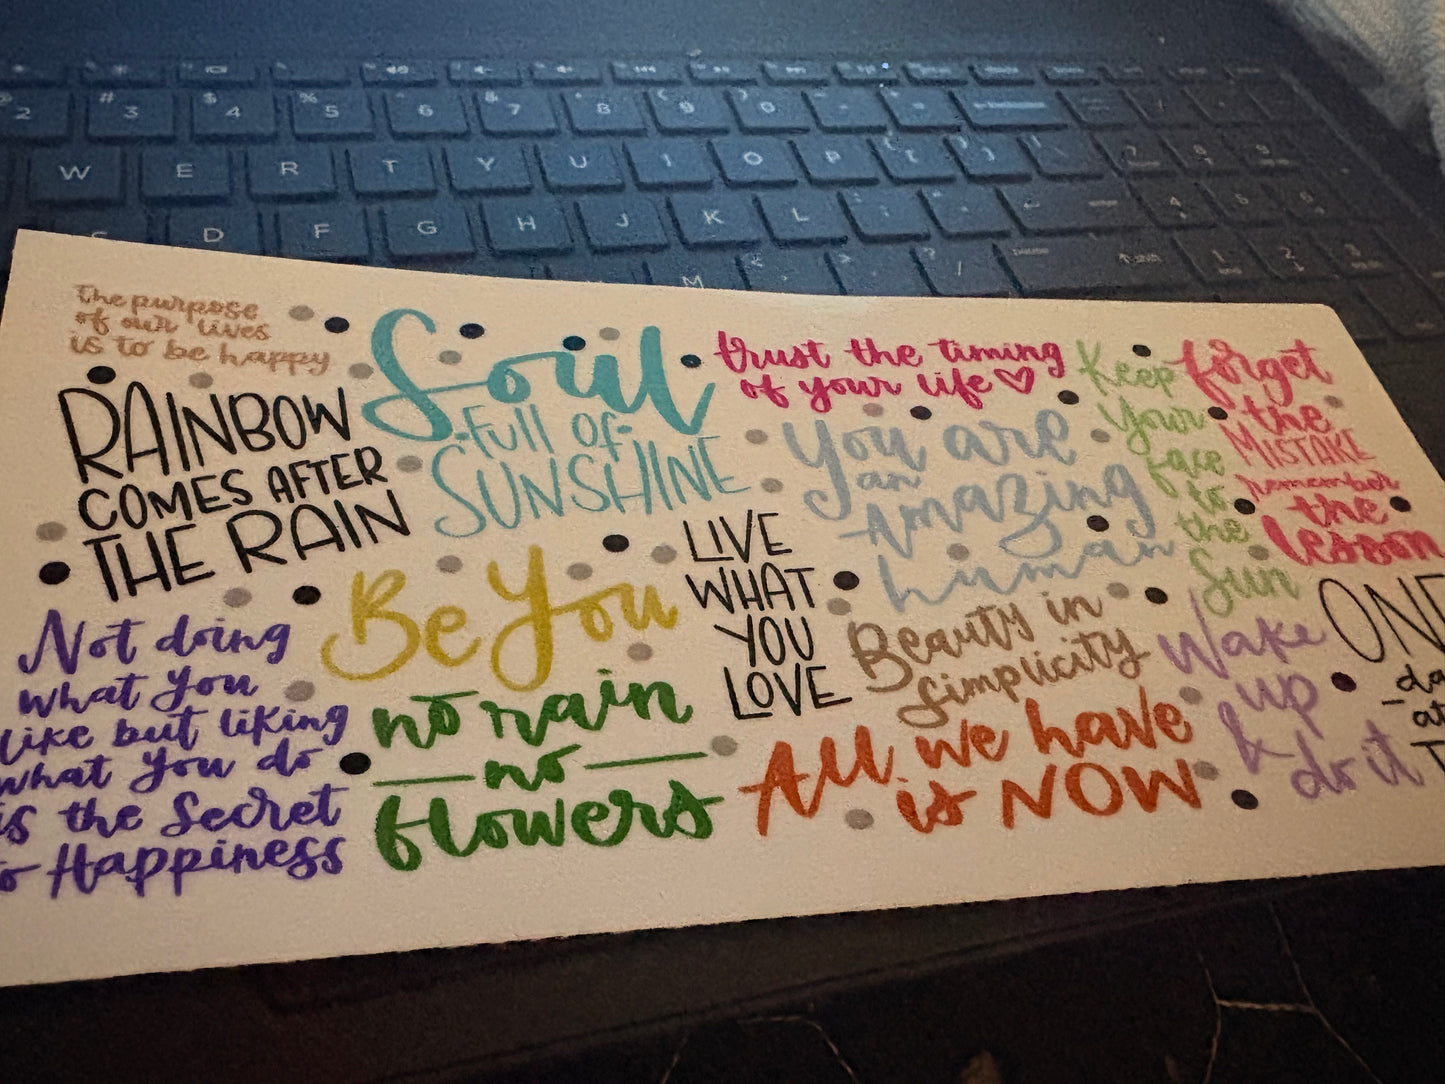 2
# 3
$ 4
% 5
6
& 7
* 8
( 9
) 0
W E R T Y U I O P
D F G H J K L
M
the purpose
of our lives
is to be happy
RAINBOW
COMES AFTER
THE RAIN
Soul
-full of-
SUNSHINE
trust the timing
of your life
You are
an
Amazing
human
Keep
Your
face
to
the
Sun
forget
the
MISTAKE
remember
the
lesson
Not doing
what you
like but liking
what you do
is the Secret
to Happiness
Be You
no rain
no
flowers
LIVE
WHAT
YOU
LOVE
Beauty in
simplicity
All we have
is NOW
Wake
up
&
do it
ONE
da
at
T